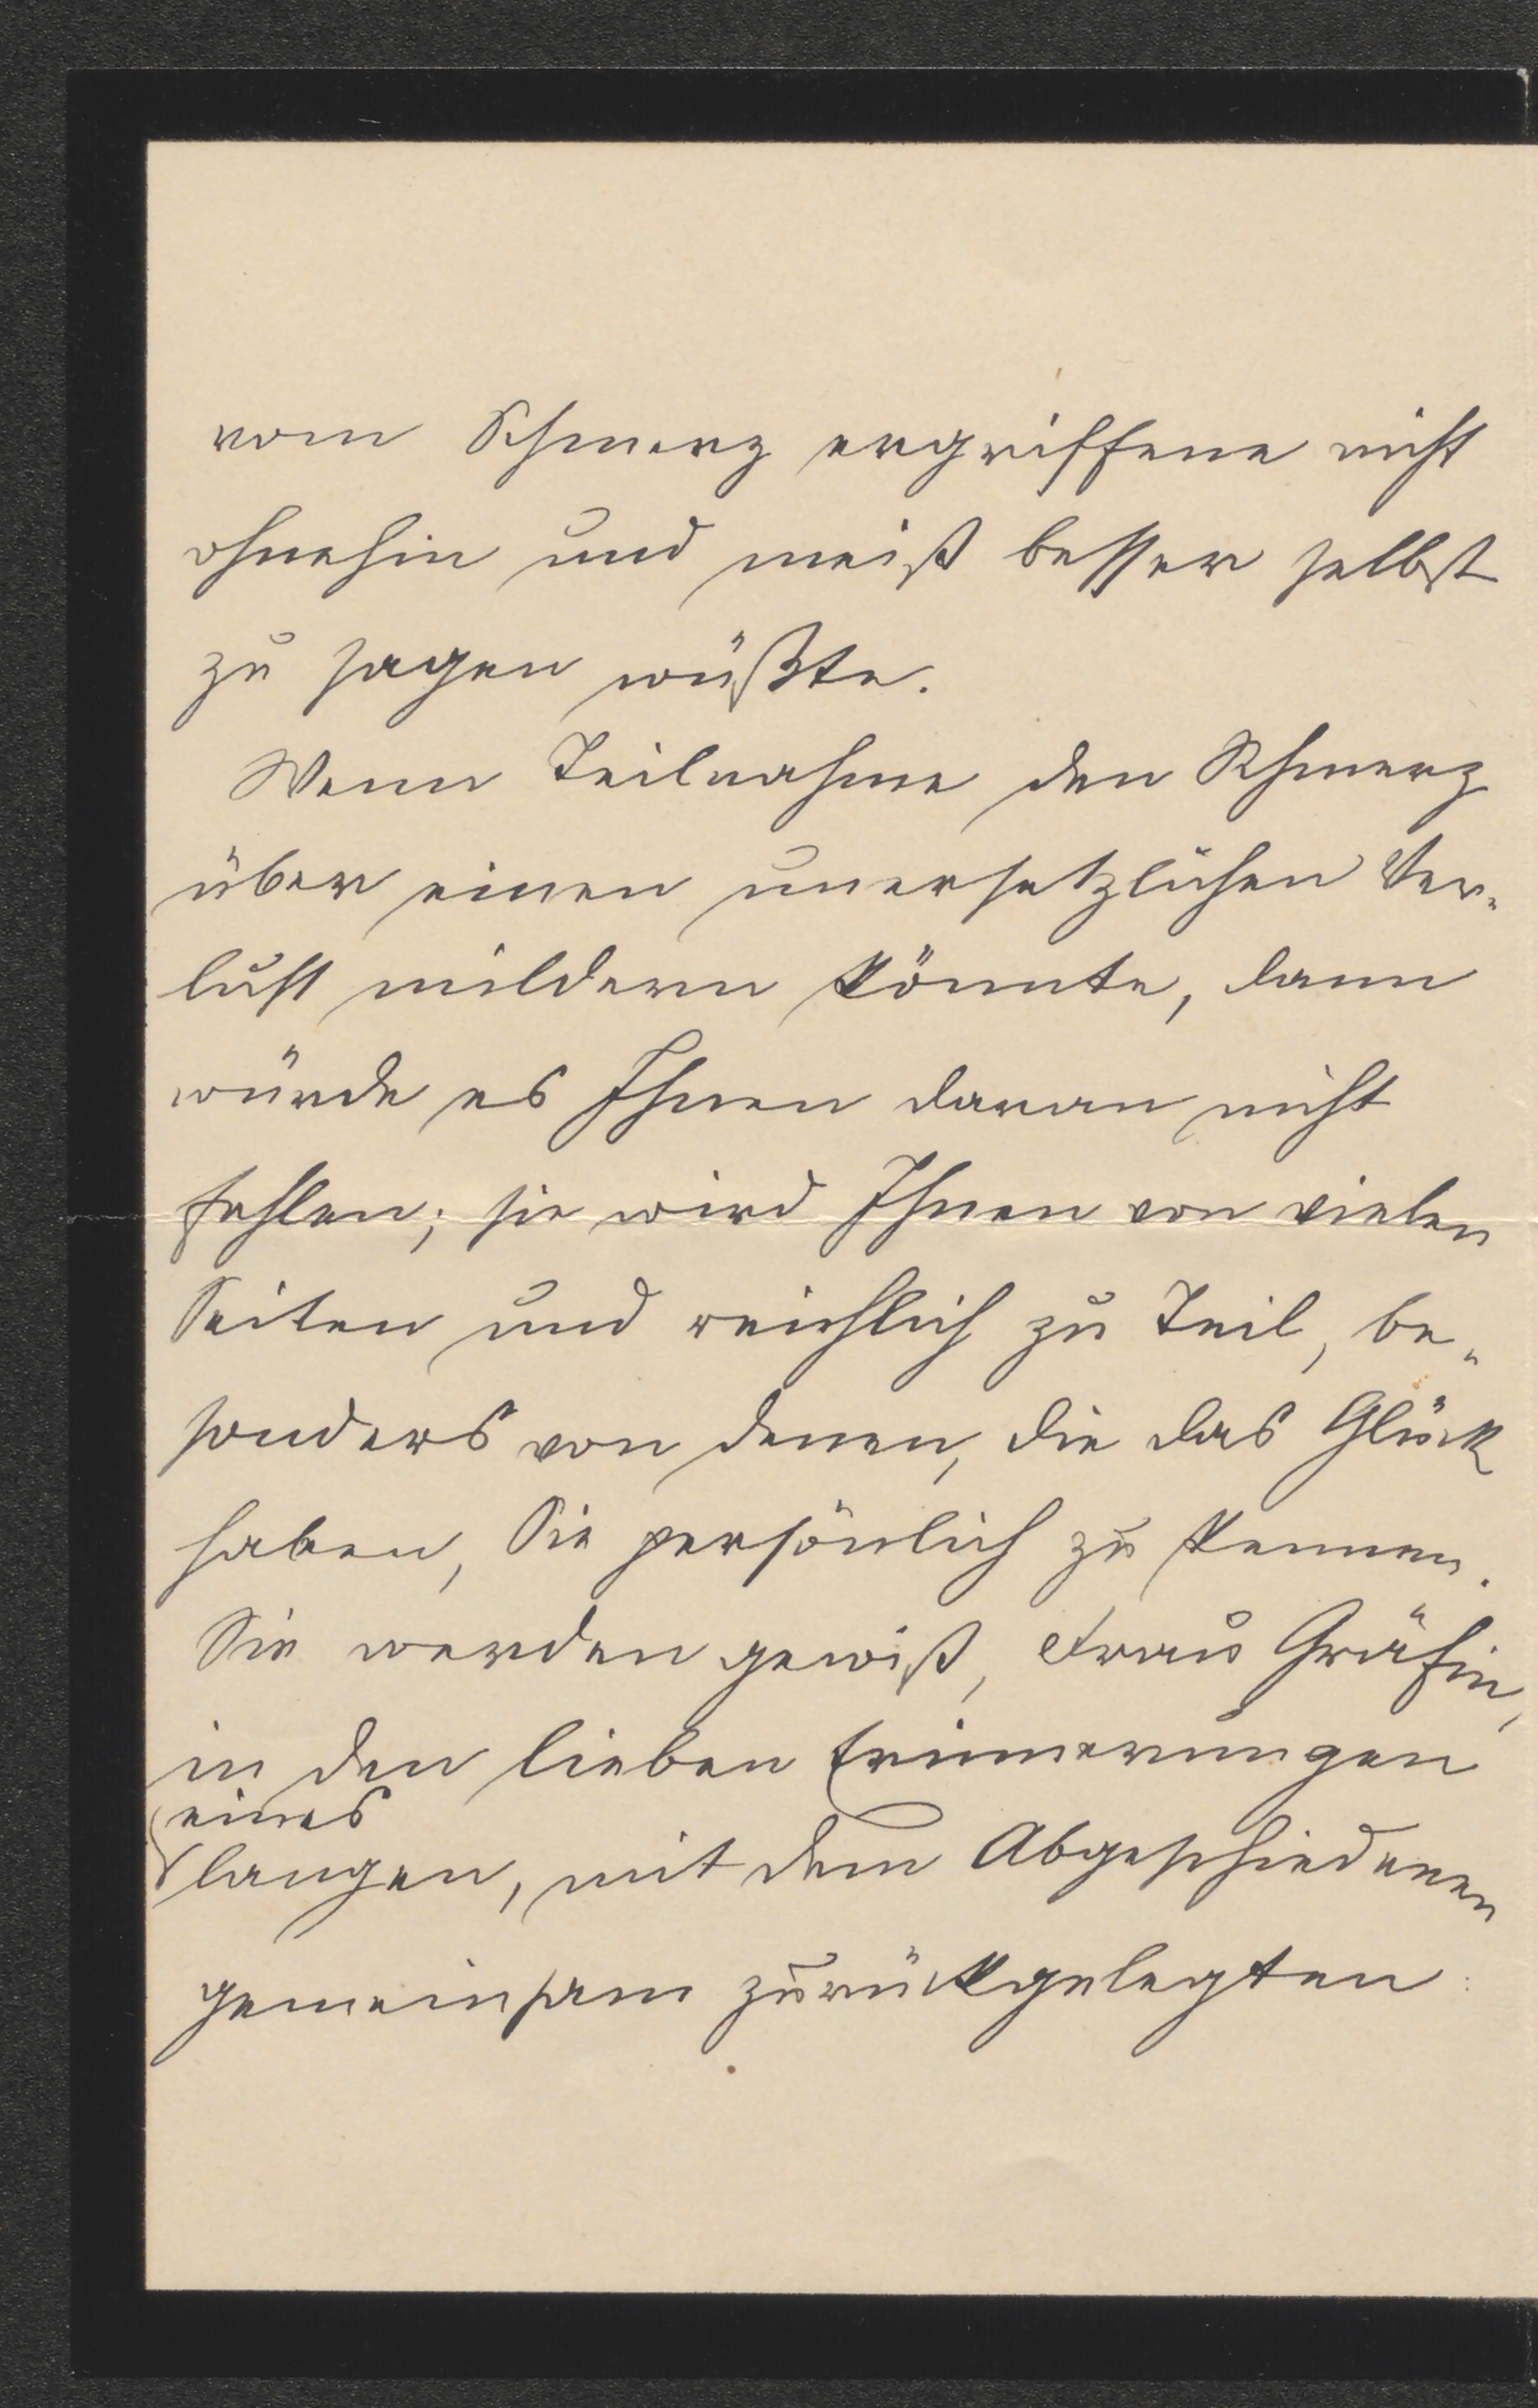 vom Schmerz ergriffene nicht
ohnehin und meist besser selbst
zu sagen wüßte.
Wenn Teilnahme den Schmerz
über einen unersetzlichen Ver-
lust mildern könnte, dann
würde es Ihnen daran nicht
fehlen; sie wird Ihnen von vielen
Seiten und reichlich zu Teil, be-
sonders von denen, die das Glück
haben, Sie persönlich zu kennen.
Sie werden gewiß, Frau Gräfin,
in den lieben Erinnerungen
eines
langen, mit dem Abgeschiedenen
gemeinsam zurückgelegten